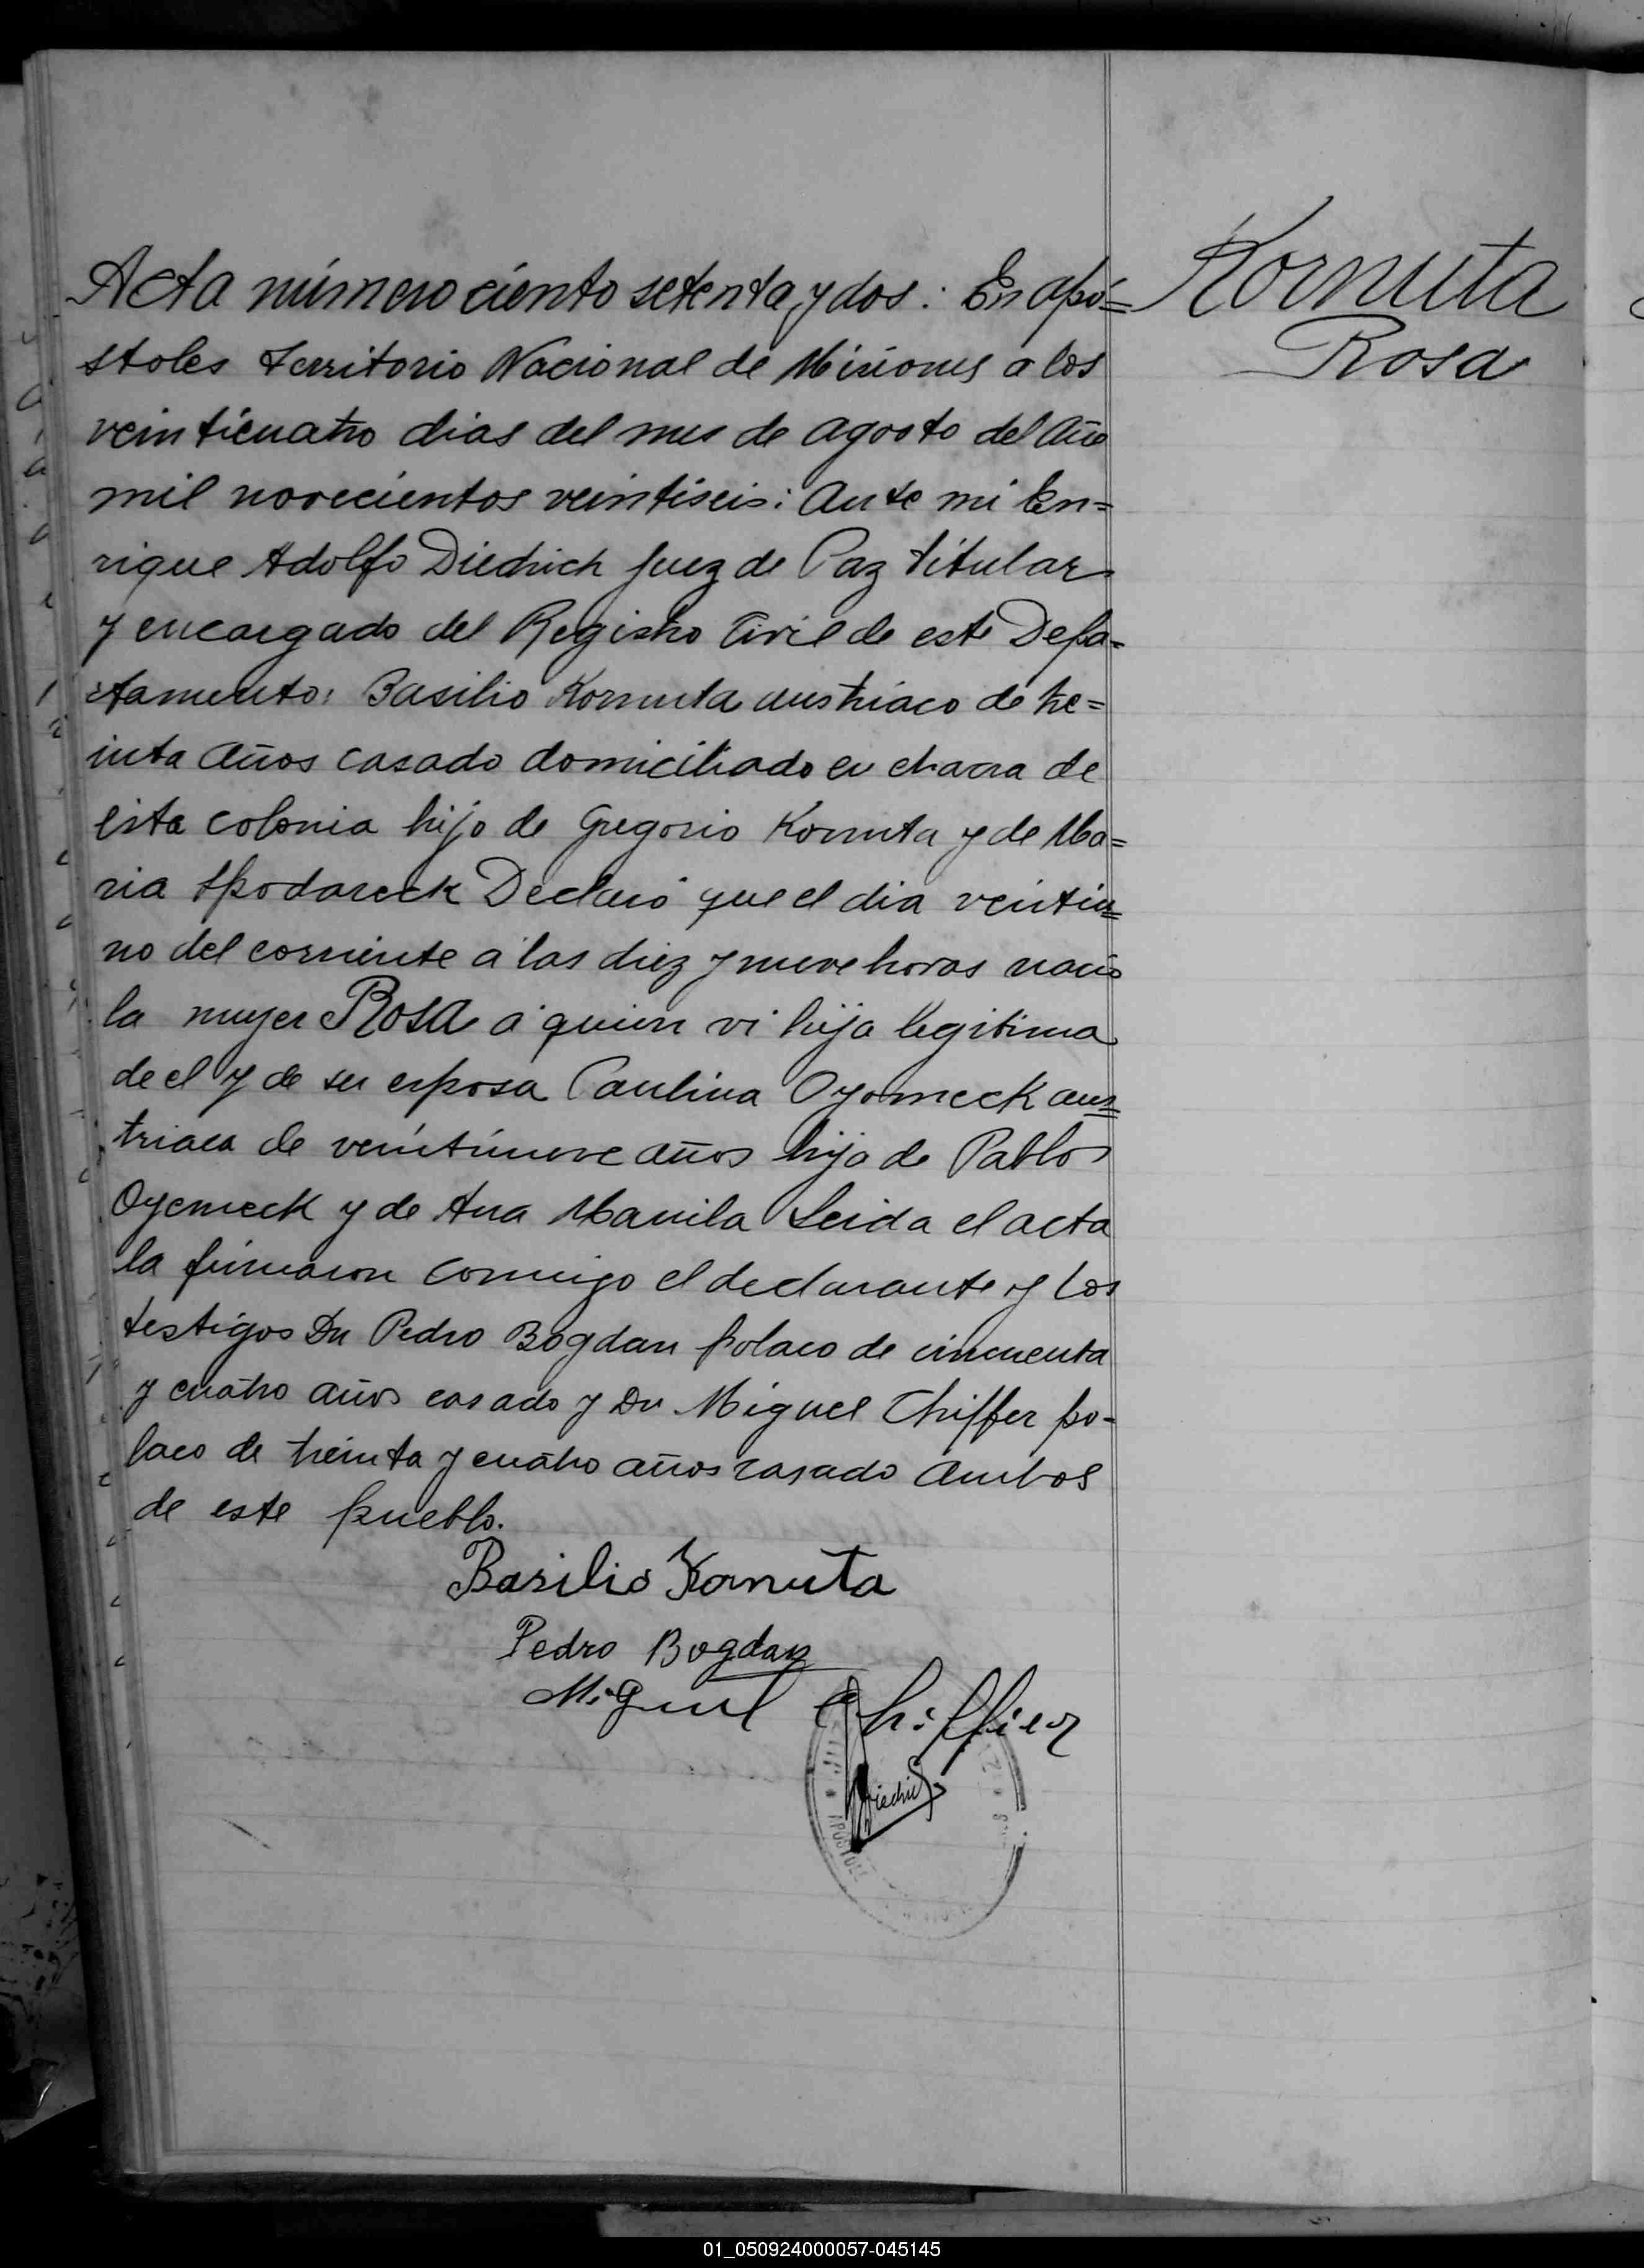 Kornuta
Rosa
Acta número ciento setenta y dos: En apo=
stoles Territorio Nacional de Misiones a los
veinticuatro dias del mes de agosto del año
mil novecientos veintiseis: Ante mi En=
rique Adolfo Diedrich Juez de Paz titular
y encargado del Registro Civil de este Depa=
rtamento: Basilio Kornuta austriaco de tre=
inta años casado domiciliado en chacra de
esta colonia hijo de Gregorio Kornuta y de Ma=
ria Spodareck Declaró que el dia veintiu=
no del corriente a las diez y nueve horas nació
la mujer Rosa a quien vi hija legitima
de el y de su esposa Paulina Oyomeck aus=
triaca de veintinueve años hija de Pablo
Oyemeck y de Ana Manila Leida el acta
la firmaron conmigo el declarante y los
testigos Dn Pedro Bogdan polaco de cincuenta
y cuatro años casado y Dn Miguel Chiffer po-
laco de treinta y cuatro años casado ambos
de este pueblo.
Basilio Kornuta
Pedro Bogdan
Miguel Chiffier
Diedrich
APOSTOLES
01_050924000057-045145